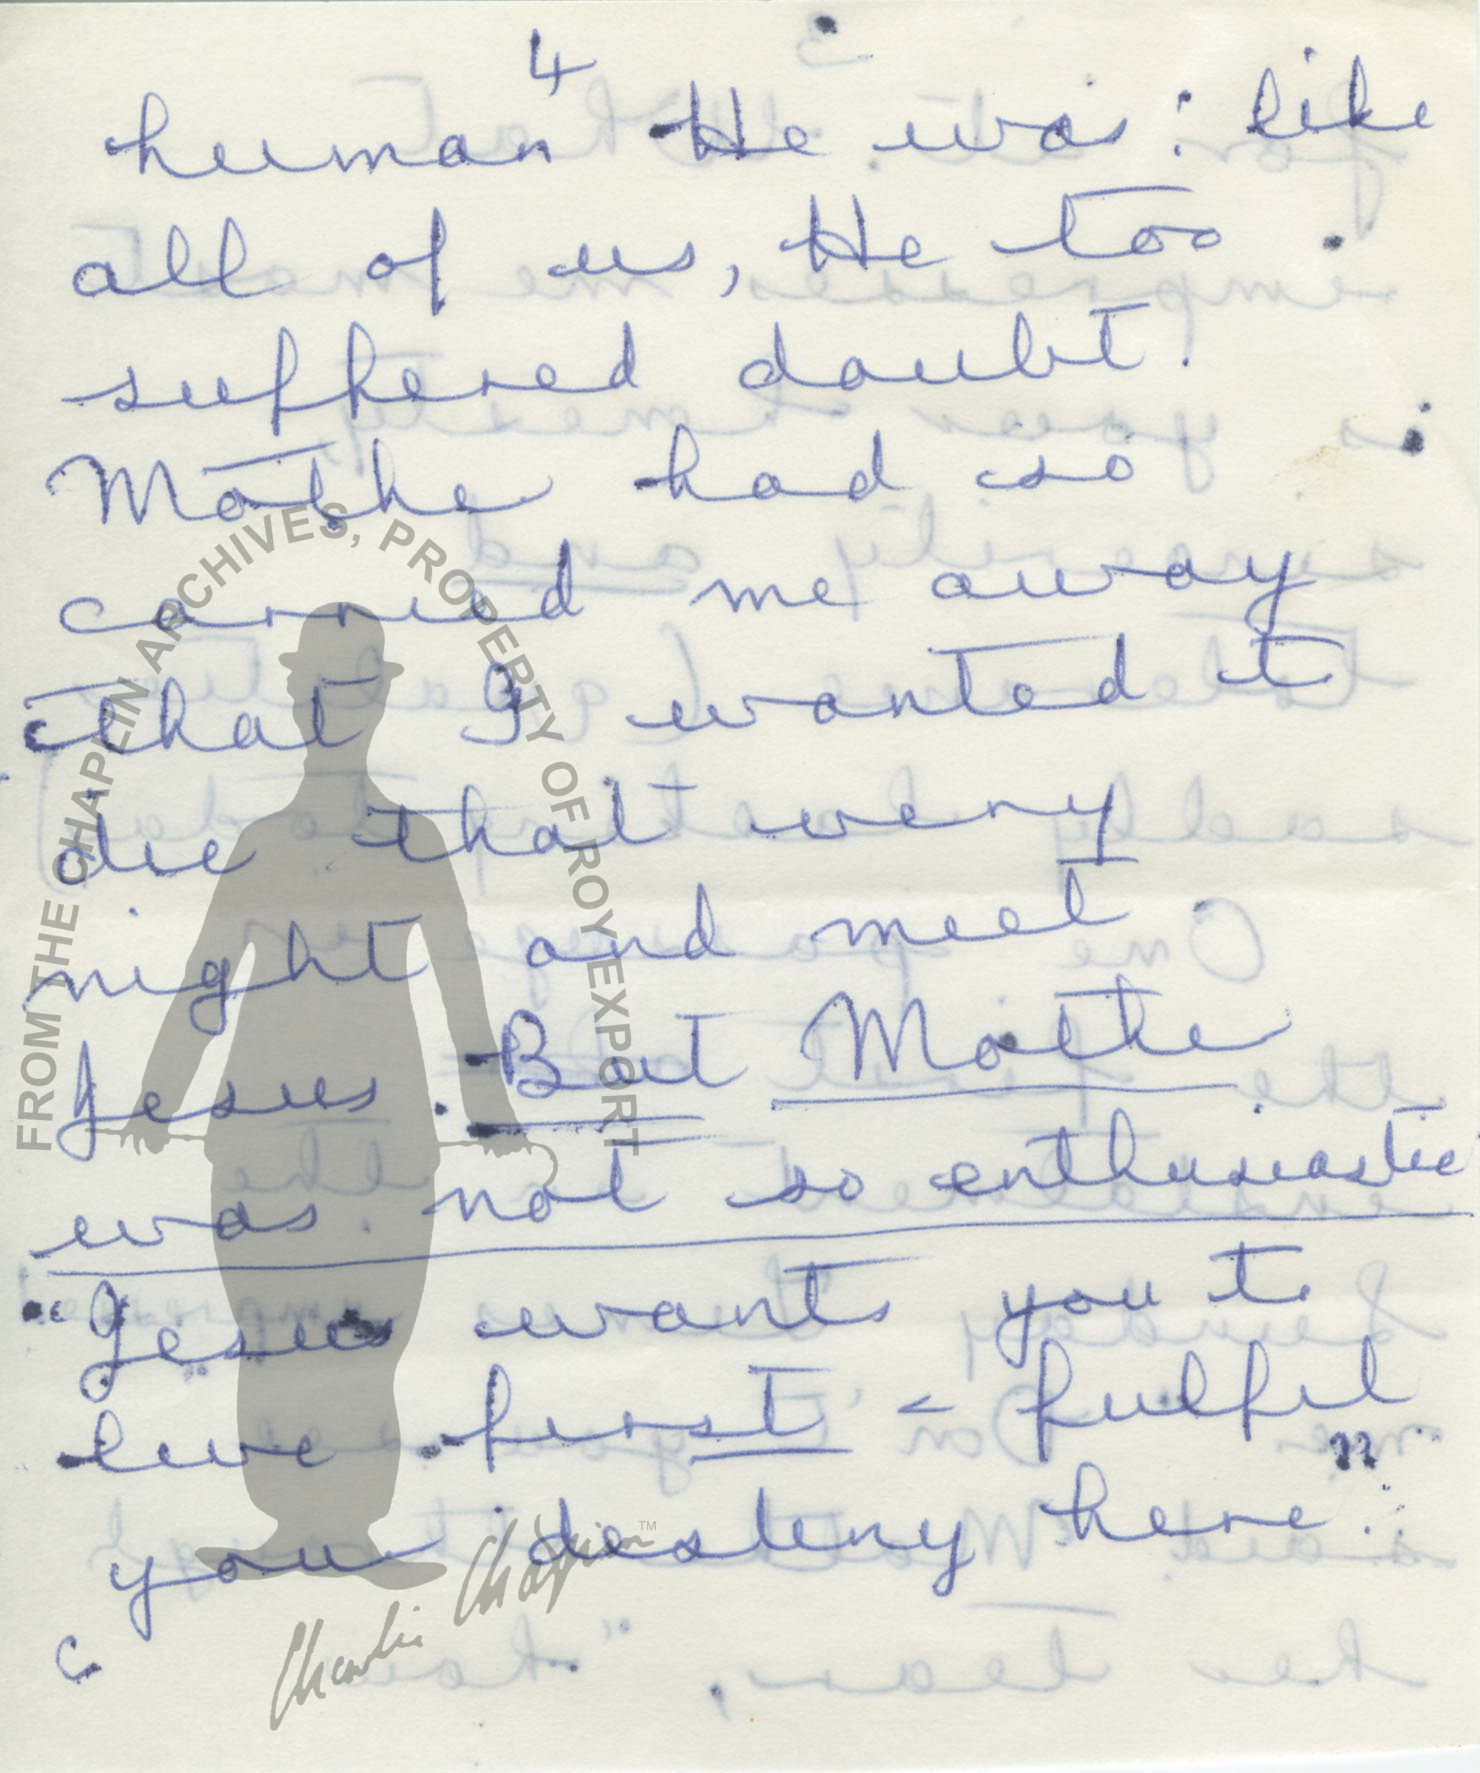 4
human He was: like
all of us, He too
suffered doubt.
Mothe had so
carried me away
that I wanted t
die that very
night and meet
Jesus. But Mothe
was not so enthusiastic
"Jesus wants you t
live first - fulfil
your destiny here."
FROM THE CHAPLIN ARCHIVES, PROPERTY OF ROY EXPORT
Charlie Chaplin TM